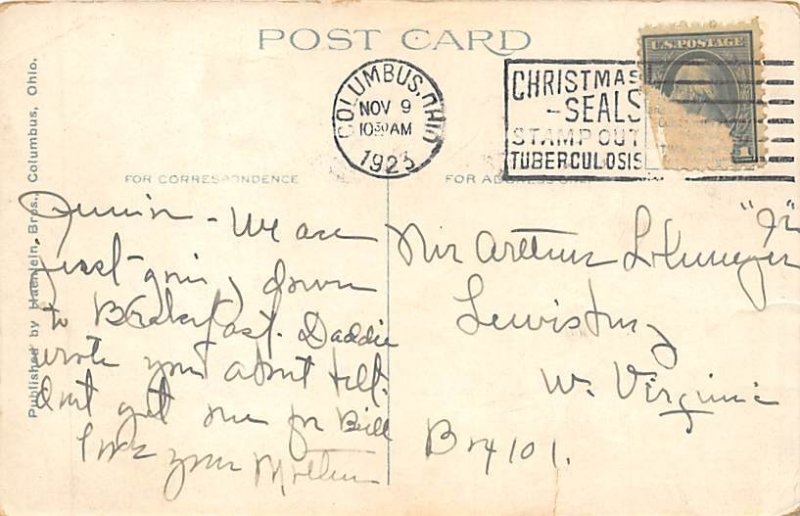 POST CARD
COLUMBUS, OHIO
NOV 9
10 30 AM
1923
CHRISTMAS
-SEALS
STAMP OUT
TUBERCULOSIS
U.S. POSTAGE
1
FOR CORRESPONDENCE
FOR ADDRESS ONLY
Published by Haenlein Bros., Columbus, Ohio.
Junior - We are
just going down
to Breakfast. Daddie
wrote you about
Dont get me for Bill
Love your Mother
Mr Arthur "Jr"
Lewisburg
W. Virginia
Box 101.